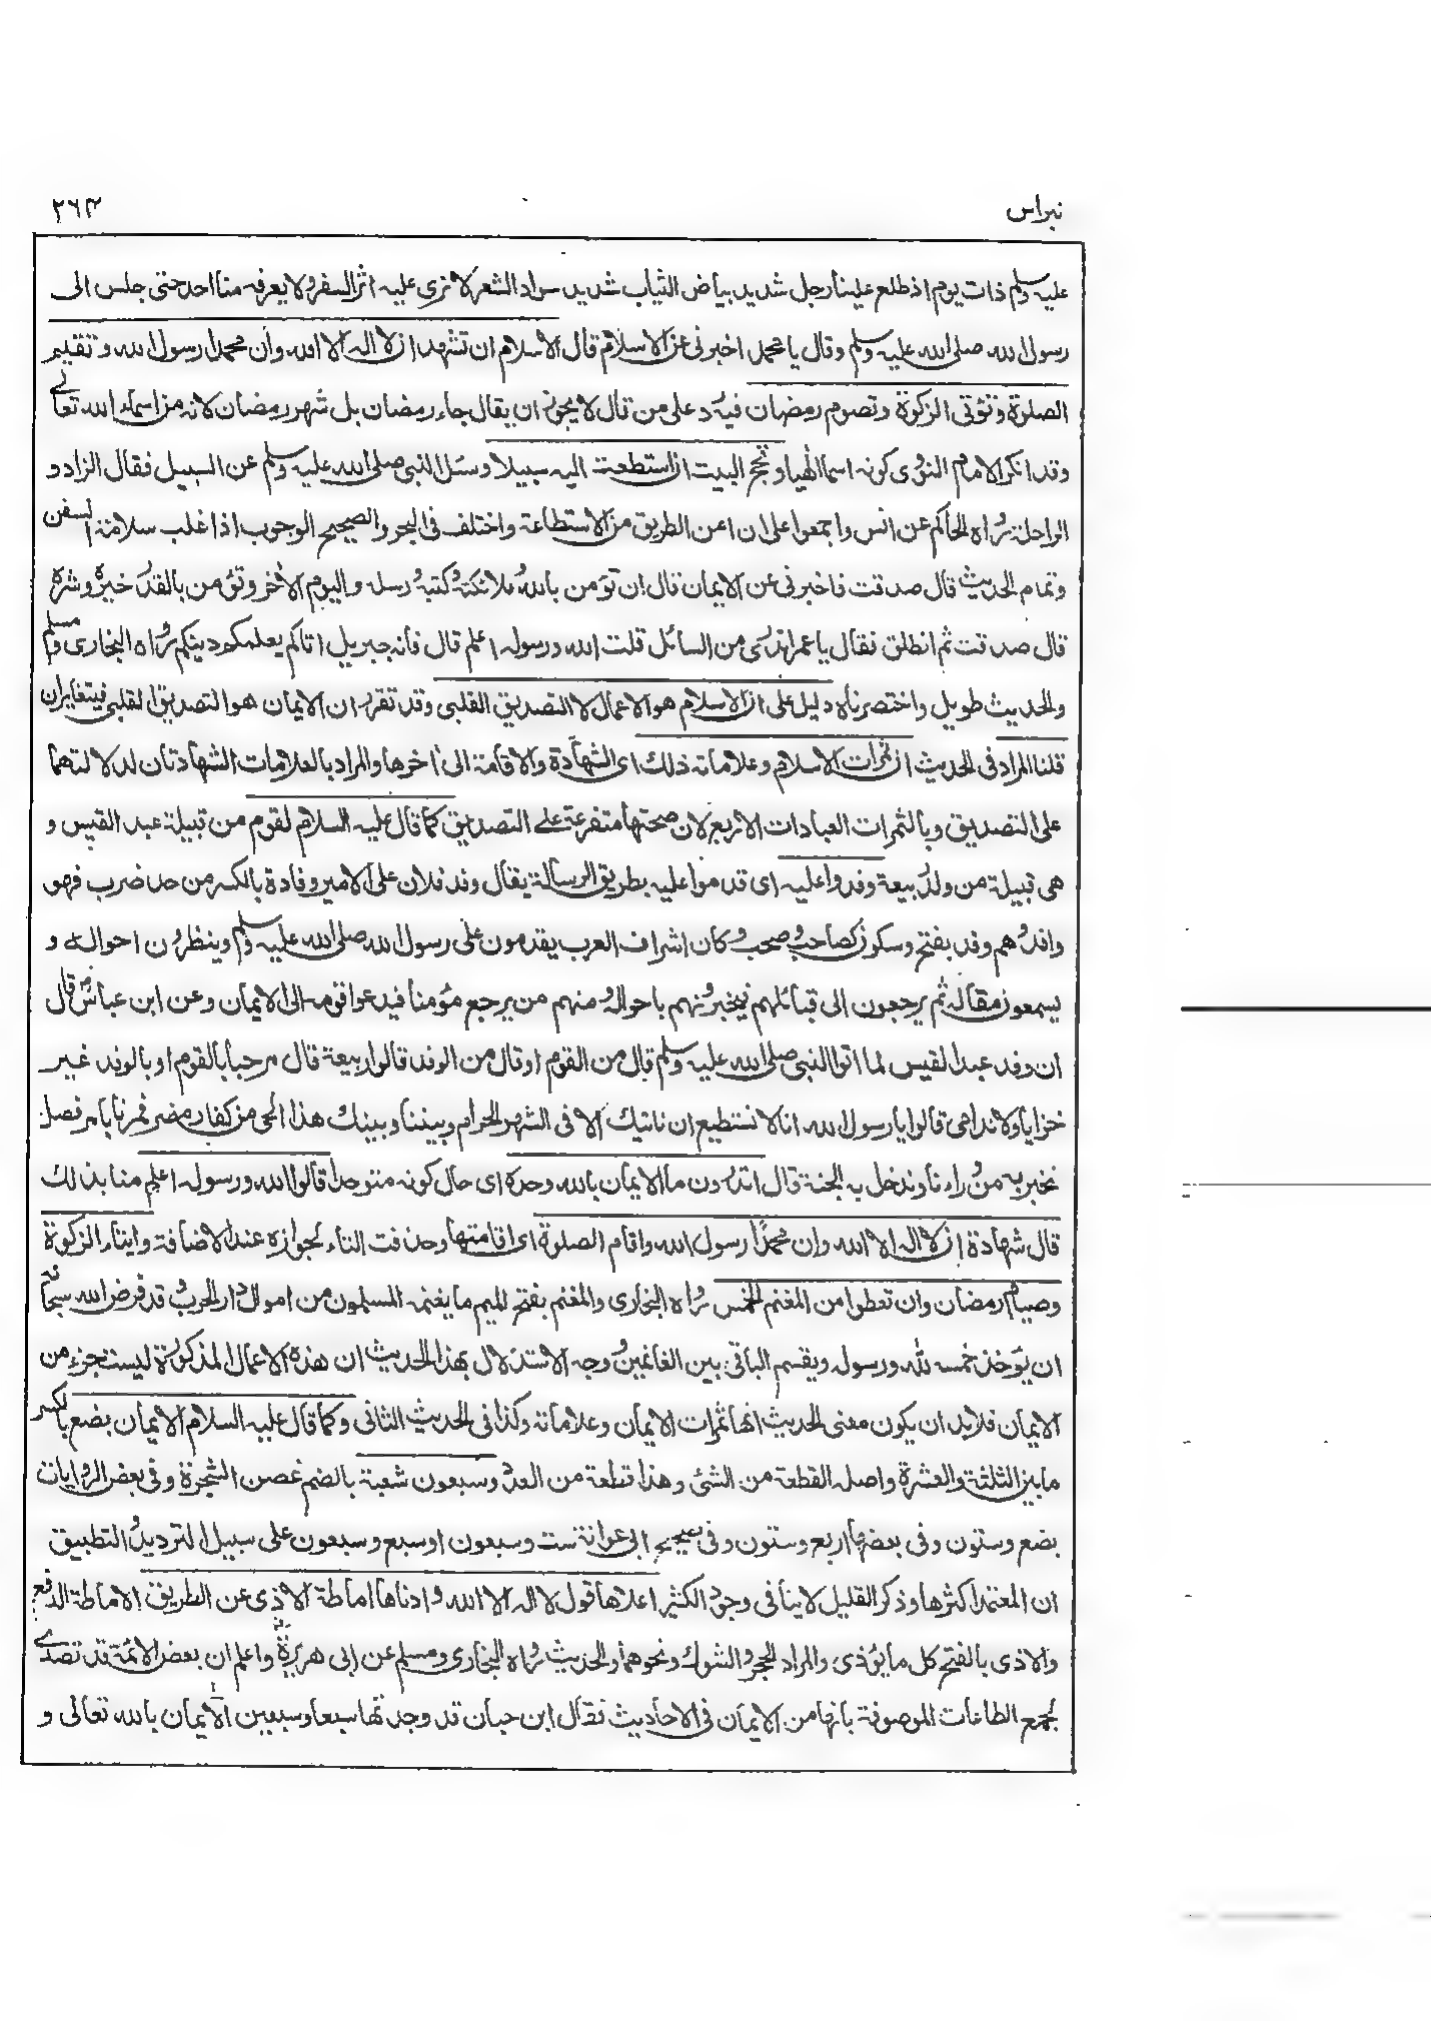 نبراس
٢٦٣
عليه وسلم ذات يوم اذ طلع علينا رجل شديد بياض الثياب شديد سواد الشعر لا نرى عليه اثر السفر ولا يعرفه منا احد حتى جلس الى
رسول الله صلى الله عليه وسلم وقال يا محمد اخبرنى عن الاسلام قال الاسلام ان تشهد ان لا اله الا الله وان محمدا رسول الله وتقيم
الصلوة وتؤتى الزكوة وتصوم رمضان فيه رد على من قال لا يجوز ان يقال جاء رمضان بل شهر رمضان لانه من اسماء الله تعالى
وقد انكر الامام النووى كونه اسما الٰهيا وتحج البيت ان استطعت اليه سبيلا وسئل النبى صلى الله عليه وسلم عن السبيل فقال الزاد و
الراحلة رواه الحاكم عن انس واجمعوا على ان امن الطريق من الاستطاعة واختلف فى البحر والصحيح الوجوب اذا غلب سلامة السفن
وتمام الحديث قال صدقت فاخبرنى عن الايمان قال ان تؤمن بالله وملائكته وكتبه ورسله واليوم الاٰخر وتؤمن بالقدر خيره وشره
قال صدقت ثم انطلق فقال يا عمر اتدرى من السائل قلت الله ورسوله اعلم قال فانه جبريل اتاكم يعلمكم دينكم رواه البخارى ومسلم
والحديث طويل واختصرناه دليل على ان الاسلام هو الاعمال لا التصديق القلبى وقد تقرر ان الايمان هو التصديق القلبى فيتغايران
قلنا المراد فى الحديث ان ثمرات الاسلام وعلاماته ذلك اى الشهادة والاقامة الى اٰخرها والمراد بالعلامات الشهادتان لدلالتهما
على التصديق وبالثمرات العبادات الاربع لان صحتها متفرعة على التصديق كما قال عليه السلام لقوم من قبيلة عبد القيس و
هى قبيلة من ولد ربيعة وفدوا عليه اى قدموا عليه بطريق الرسالة يقال وفد فلان على الامير وفادة بالكسر من حد ضرب فهو
وافد وهم وفد بفتح وسكون كصاحب وصحب وكان اشراف العرب يقدمون على رسول الله صلى الله عليه وسلم وينظرون احواله و
يسمعون مقاله ثم يرجعون الى قبائلهم فيخبرونهم باحواله ومنهم من يرجع مؤمنا فيدعوا قومه الى الايمان وعن ابن عباس رض قال
ان وفد عبد القيس لما اتوا النبى صلى الله عليه وسلم قال من القوم او قال من الوفد قالوا ربيعة قال مرحبا بالقوم او بالوفد غير
خزايا ولا ندامى قالوا يا رسول الله انا لا نستطيع ان ناتيك الا فى الشهر الحرام وبيننا وبينك هذا الحى من كفار مضر فمرنا بامر فصل
نخبر به من وراءنا وندخل به الجنة قال اتدرون ما الايمان بالله وحده اى حال كونه متوحدا قالوا الله ورسوله اعلم منا بذلك
قال شهادة ان لا اله الا الله وان محمدا رسول الله واقام الصلوة اى اقامتها وحذفت التاء لجوازه عند الاضافة وايتاء الزكوة
وصيام رمضان وان تعطوا من المغنم الخمس رواه البخارى والمغنم بفتح الميم ما يغنمه المسلمون من اموال دار الحرب وقد فرض الله سبحانه
ان يؤخذ خمسه لله ورسوله ويقسم الباقى بين الغانمين ووجه الاستدلال بهذا الحديث ان هذه الاعمال المذكورة ليست جزء من
الايمان فلا بد ان يكون معنى الحديث انها ثمرات الايمان وعلاماته وكذا فى الحديث الثانى وكما قال عليه السلام الايمان بضع بالكسر
ما بين الثلثة والعشرة واصله القطعة من الشئ وهذا قطعة من العدد وسبعون شعبة بالضم غصن الشجرة وفى بعض الروايات
بضع وستون وفى بعضها اربع وستون وفى صحيح ابى عوانة ست وسبعون او سبع وسبعون على سبيل الترديد والتطبيق
ان المعتمد اكثرها وذكر القليل لا ينافى وجود الكثير اعلاها قول لا اله الا الله وادناها اماطة الاذى عن الطريق الاماطة الدفع
والاذى بالفتح كل ما يؤذى والمراد الحجر والشوك ونحوهما والحديث رواه البخارى ومسلم عن ابى هريرة واعلم ان بعض الائمة قد تصدى
لجمع الطاعات الموصوفة بانها من الايمان فى الاحاديث فقال ابن حبان قد وجدتها سبعا وسبعين الايمان بالله تعالى و